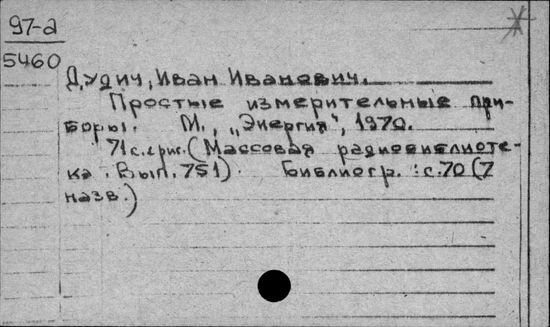 97-2
5460
Дудич, Иван Иванович.
Простые измерительные при-
боры. М., „Энергия", 1970.
71с. с рис. (Массовая радиобиблиоте-
ка. Вып. 751). Библиогр.: с. 70 (7
назв.)